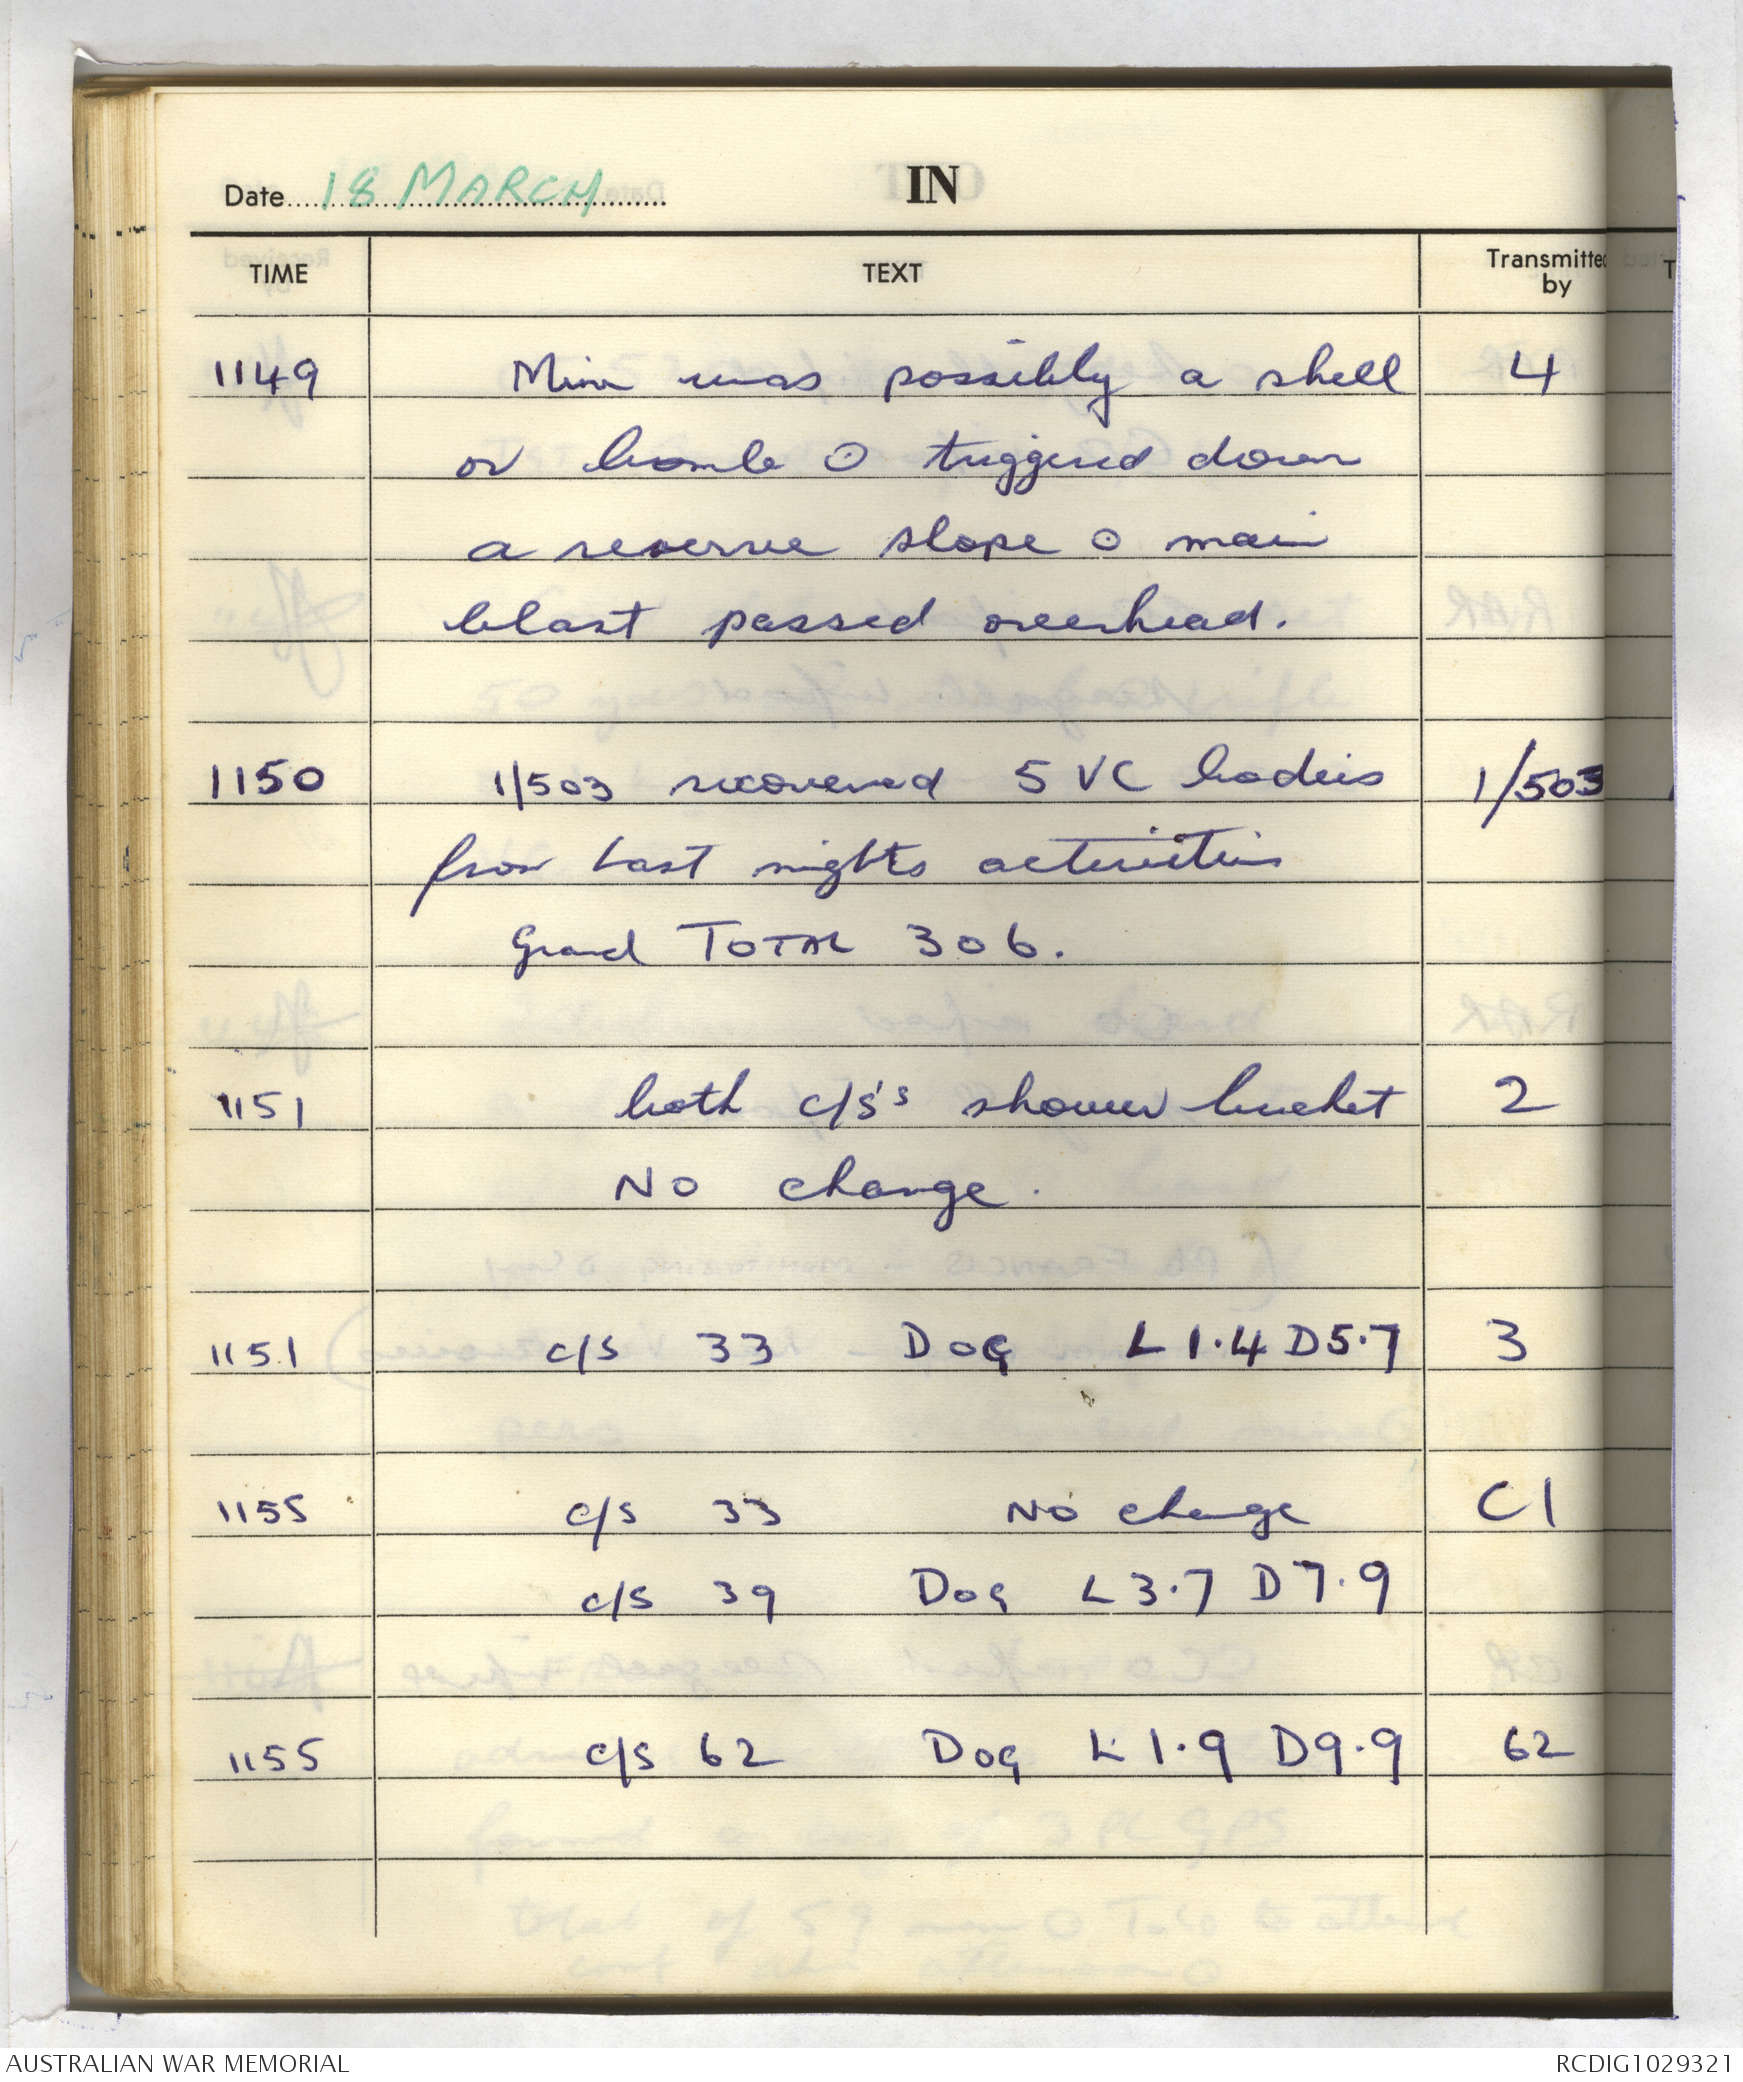 Date 18 MARCH
IN
TIME TEXT Transmitted by
1149 Mine was possibly a shell 4
or bomb ⊙ triggered down
a reverse slope ⊙ main
blast passed overhead.
1150 1/503 recovered 5 VC bodies 1/503
from last nights activities
Grand TOTAL 306.
1151 both c/s's shower bucket 2
No change.
1151 c/s 33 Dog L 1.4 D 5.7 3
1155 c/s 33 No change C1
c/s 39 Dog L 3.7 D 7.9
1155 c/s 62 Dog L 1.9 D 9.9 62
AUSTRALIAN WAR MEMORIAL
RCDIG1029321